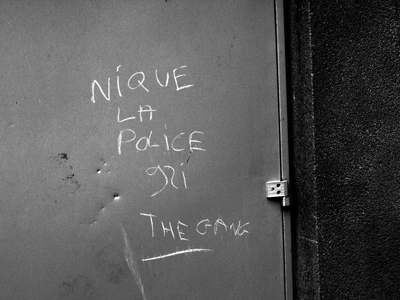 NIQUE
LA
POLICE
92i
THE GANG